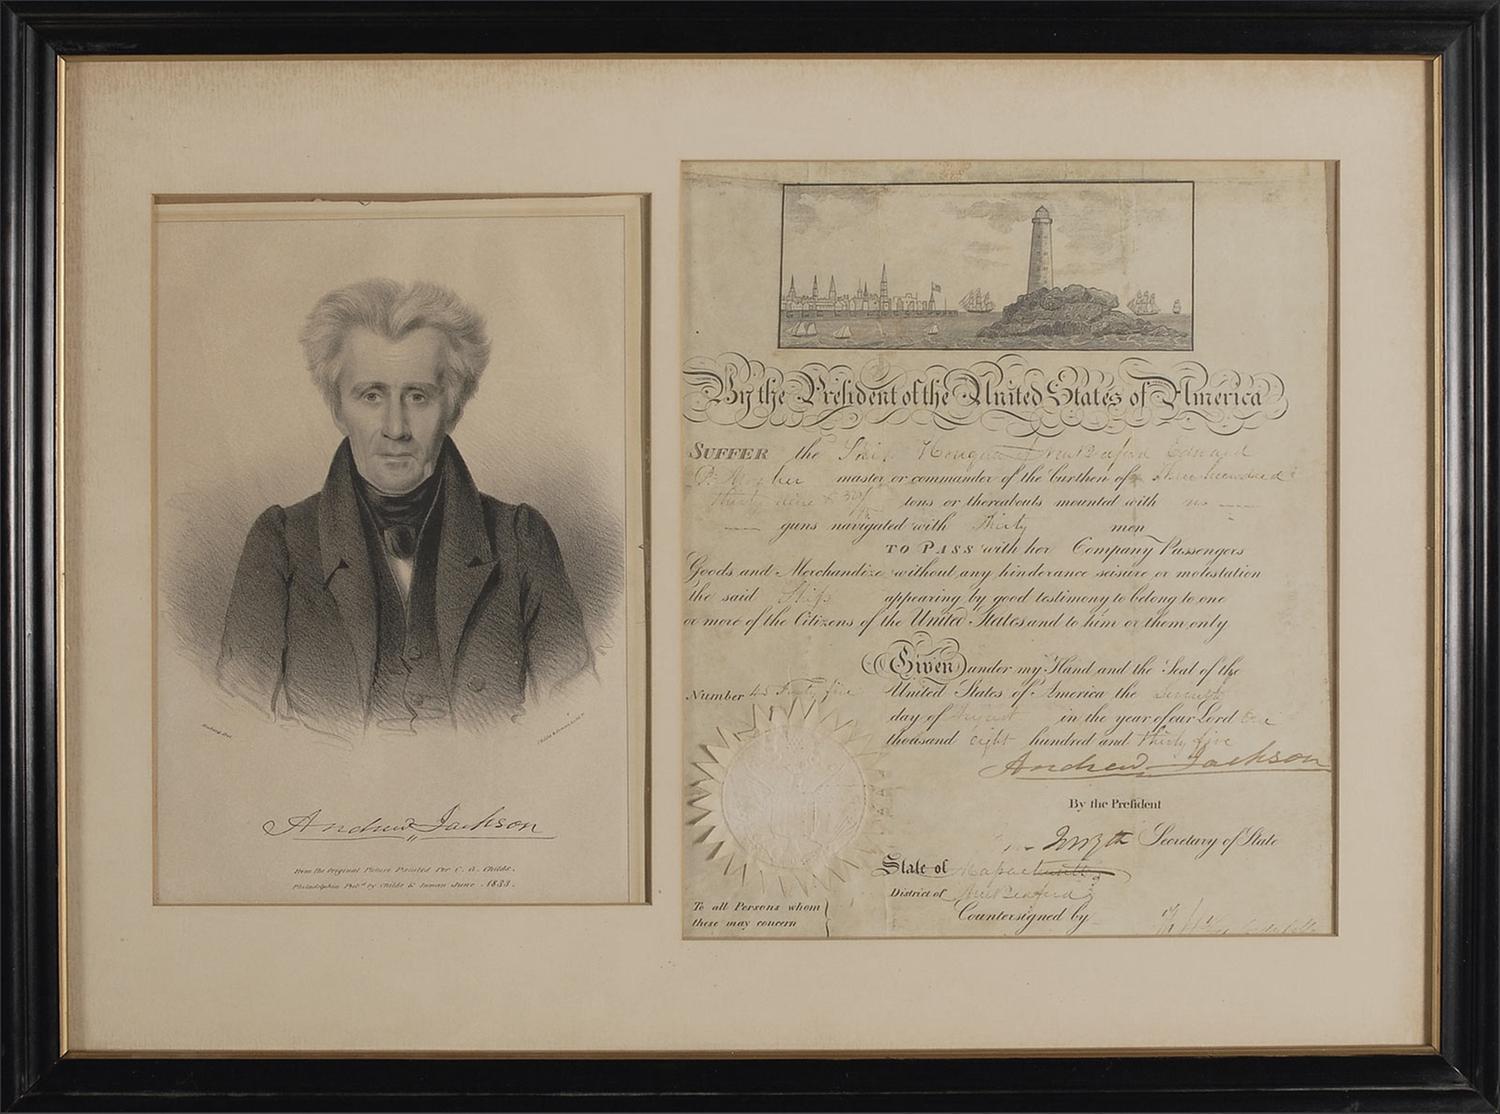 Andrew Jackson
From the Original Picture Painted For C. G. Childs.
Philadelphia Pub.d by Childs & Inman June 1833.
By the President of the United States of America
SUFFER the Ship of New Bedford Edward
master or commander of the burthen of three hundred &
thirty nine tons or thereabouts mounted with no
guns navigated with Thirty men
TO PASS with her Company Passengers
Goods and Merchandize without any hinderance seisure or molestation
the said Ship appearing by good testimony to belong to one
or more of the Citizens of the United States and to him or them only
Given under my Hand and the Seal of the
Number 45 Forty five
United States of America the Seventh
day of August in the year of our Lord One
thousand eight hundred and thirty five
Andrew Jackson
By the President
Forsyth Secretary of State
State of Massachusetts
District of New Bedford
Countersigned by
To all Persons whom
these may concern